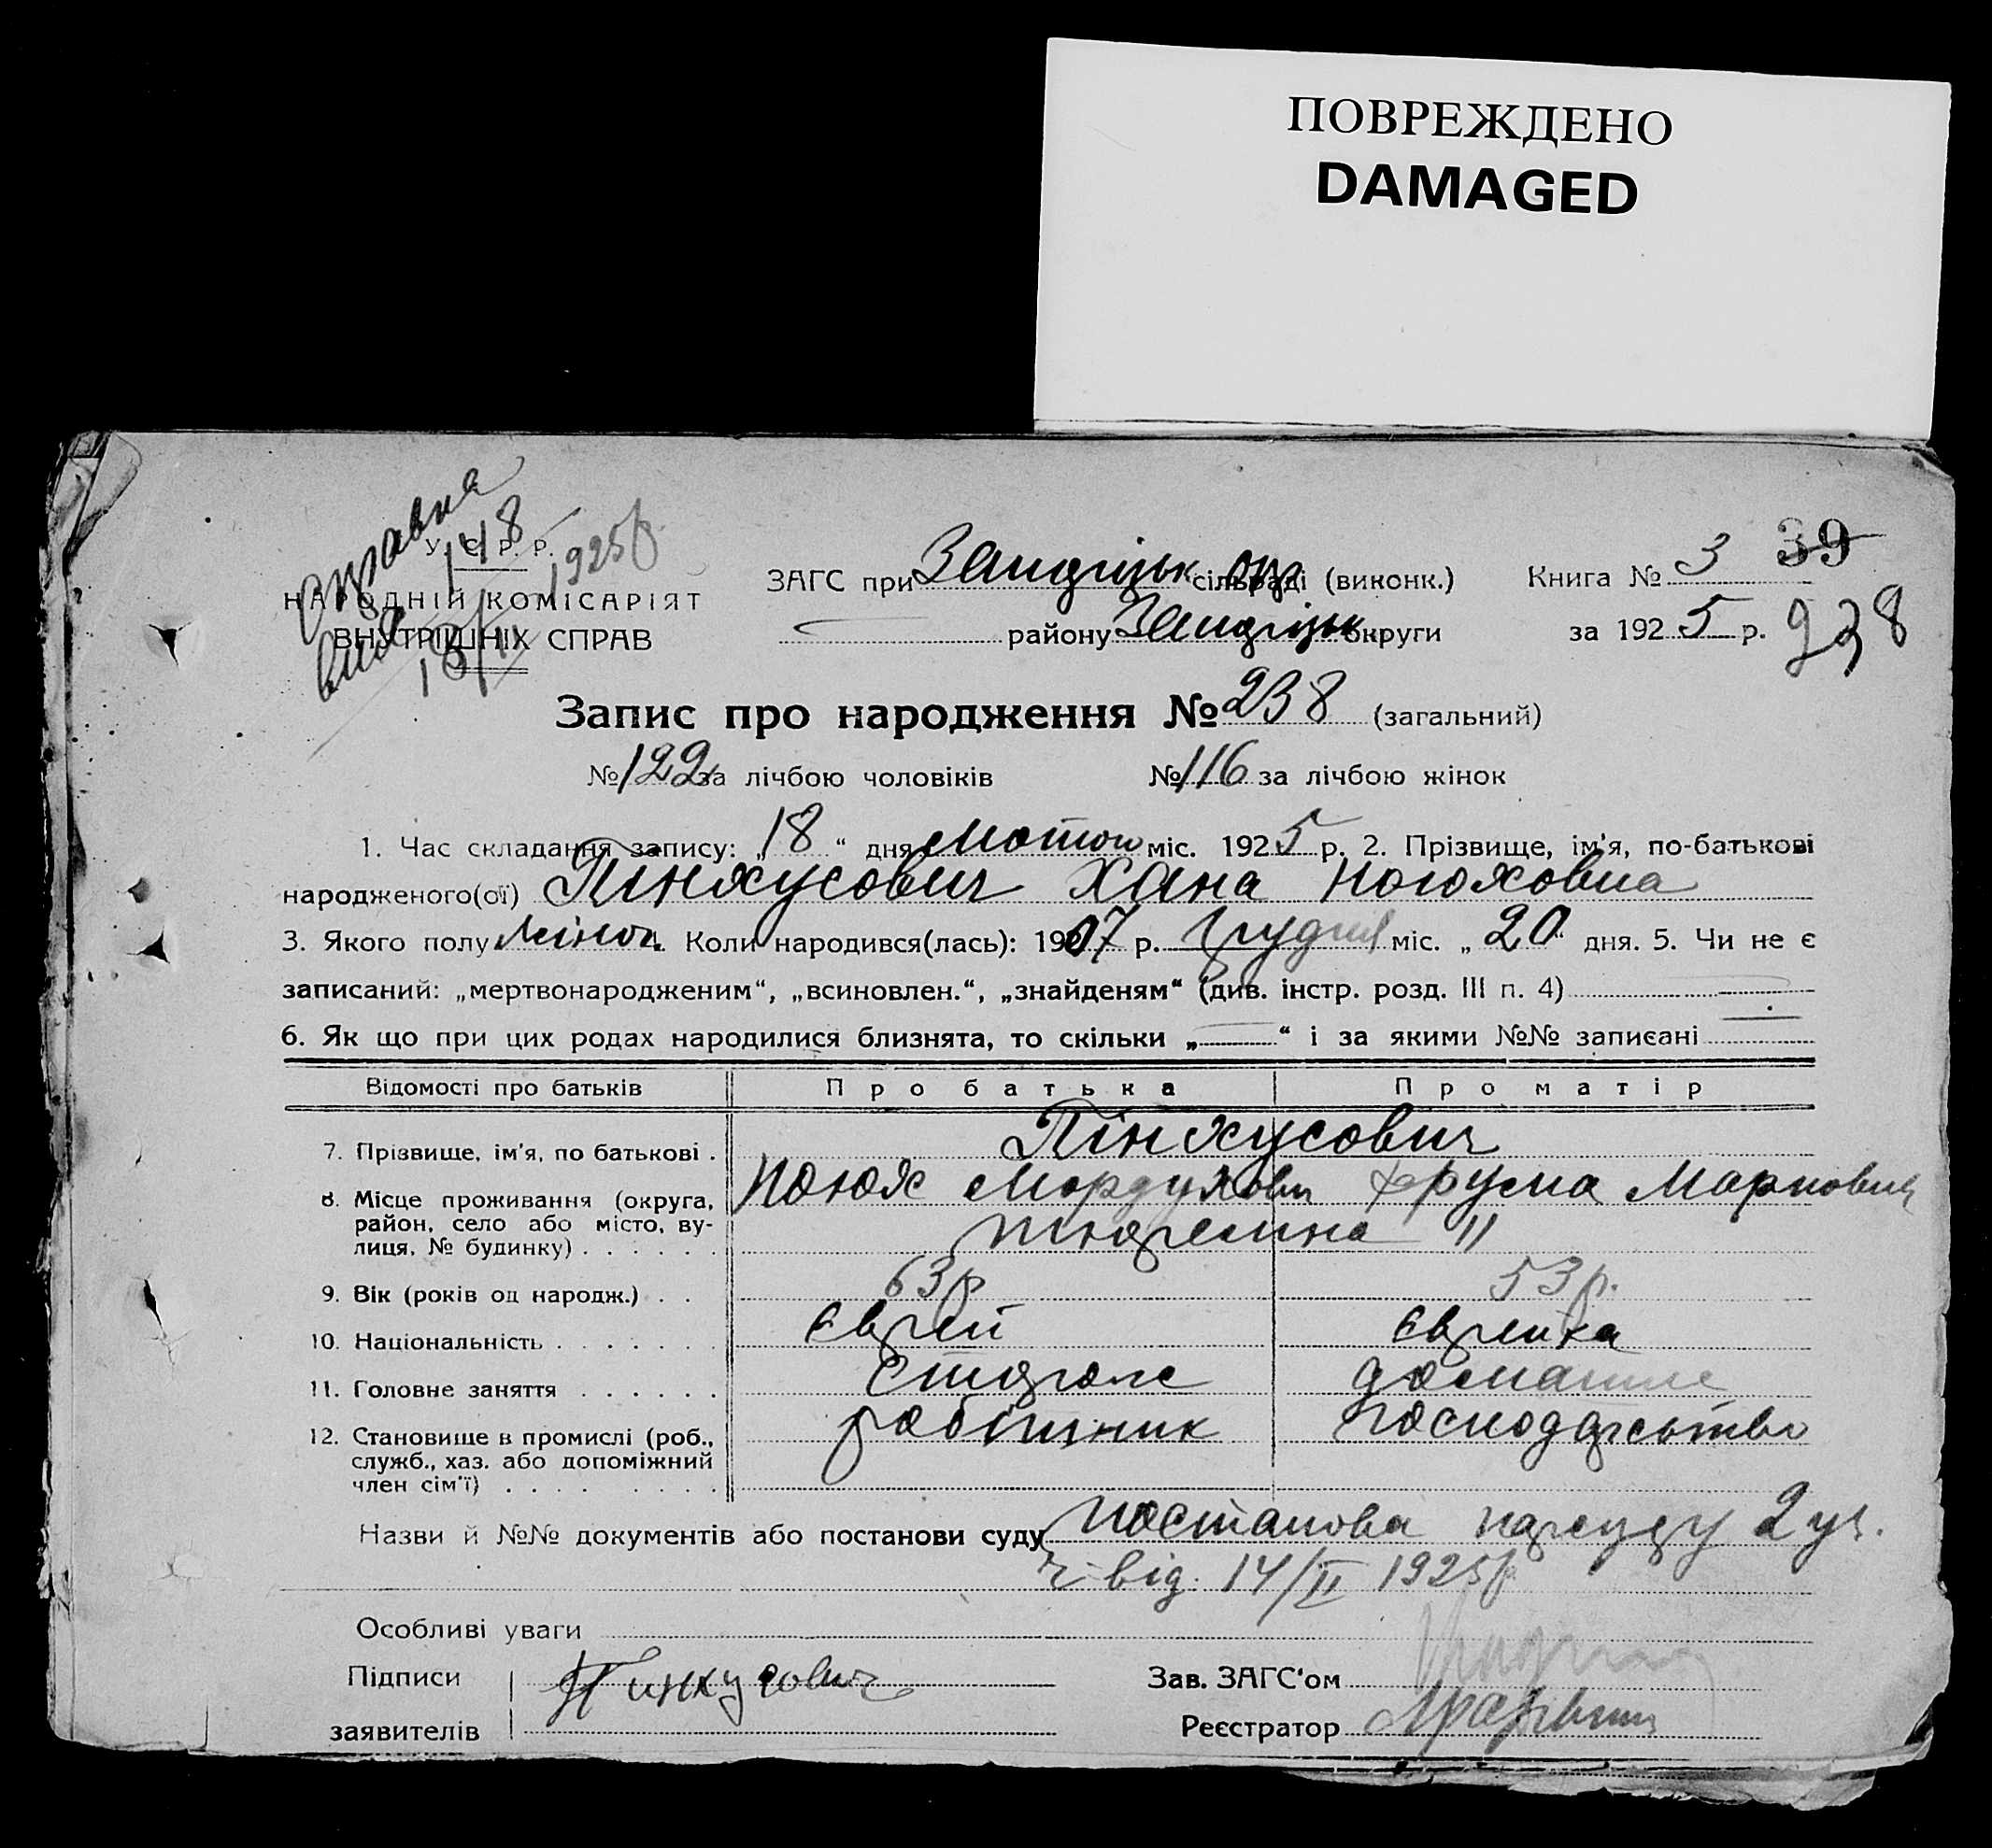 ПОВРЕЖДЕНО
DAMAGED
Справка
У. С. Р. Р.
148
1925р.
НАРОДНІЙ КОМІСАРІЯТ
ВНУТРІШНІХ СПРАВ
видa 18/II
ЗАГС при сільраді (виконк.)
району округи
Книга № 3 39
за 1925 р. 238
Запис про народження № 238 (загальний)
№ 122 за лічбою чоловіків № 116 за лічбою жінок
1. Час складання запису: „18“ дня лютого міс. 1925 р. 2. Прізвище, ім'я, по-батькові
народженого(ої) Пінхусович Хана Ноюховна
3. Якого полу жіноч. Коли народився(лась): 1907 р. грудня міс. „20“ дня. 5. Чи не є
записаний: „мертвонародженим“, „всиновлен.“, „знайденям“ (див. інстр. розд. III п. 4)
6. Як що при цих родах народилися близнята, то скільки „—“ і за якими №№ записані
Відомості про батьків Про батька Про матір
7. Прізвище, ім'я, по батькові . Пінхусович
Ноюх Мордухови Фрума Марковна
8. Місце проживання (округа,
район, село або місто, ву-
лиця, № будинку) . . . . . . 11
9. Вік (років од народж.) . . 63р 53р.
10. Національність . . . . . . . Єврей Єврейка
11. Головне заняття . . . . . . Сторож домашнє
12. Становище в промислі (роб., робітник господарство
служб., хаз. або допоміжний
член сім'ї) . . . . . . . .
Назви й №№ документів або постанови суду постанова нарсуду 2 уч.
від. 14/II 1925р
Особливі уваги
Підписи Пинхусович Зав. ЗАГС'ом
заявителів Реєстратор